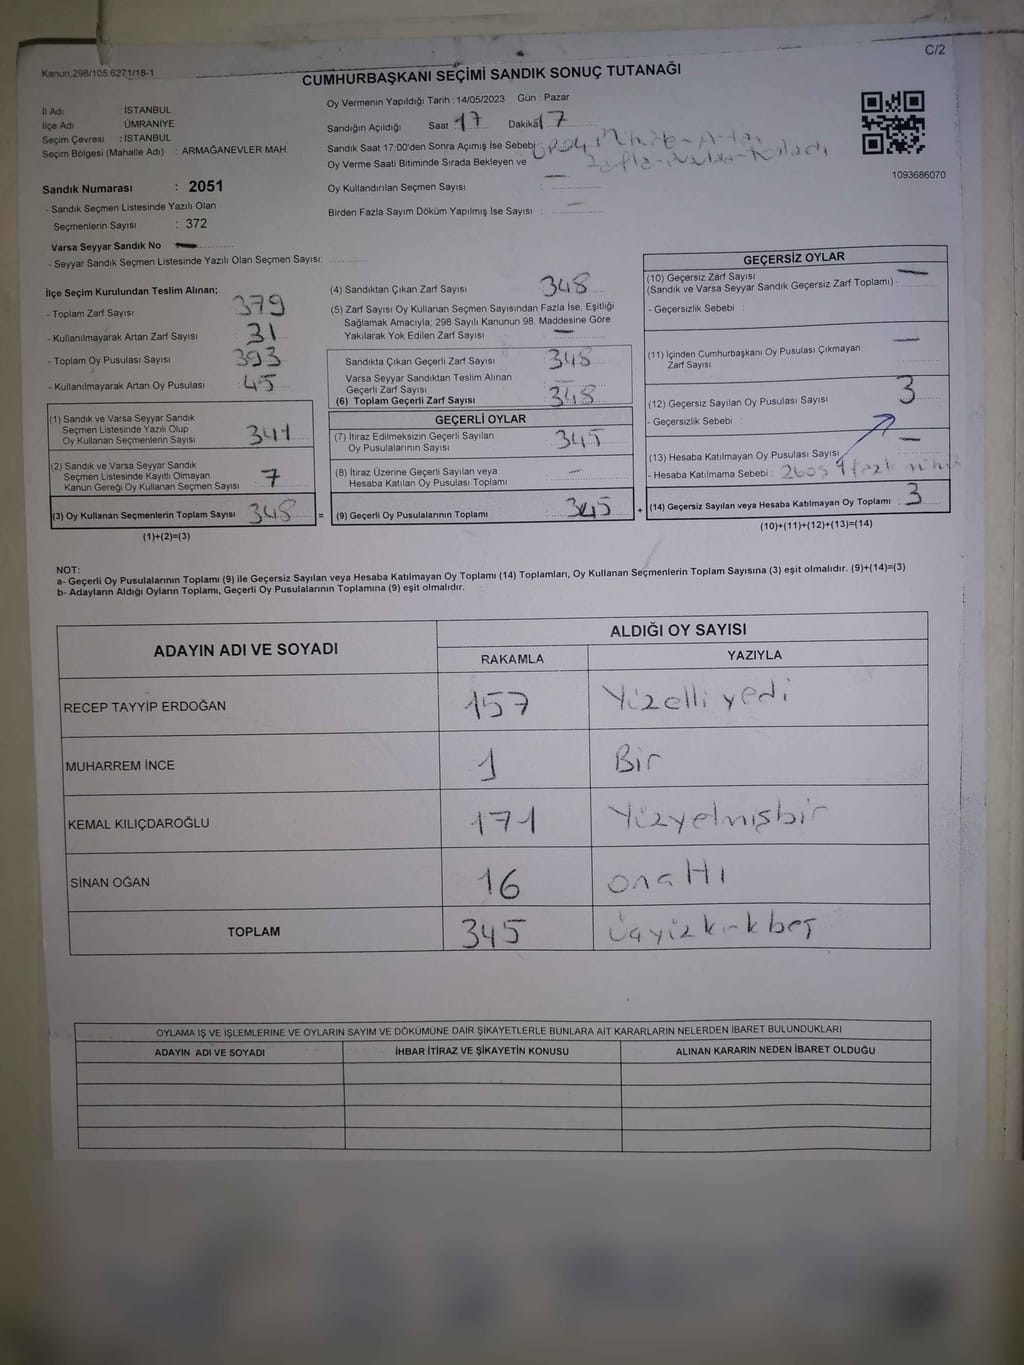 C/2
Kanun:298/105,6271/18-1
CUMHURBAŞKANI SEÇİMİ SANDIK SONUÇ TUTANAĞI
İl Adı İSTANBUL
İlçe Adı ÜMRANİYE
Seçim Çevresi : İSTANBUL
Seçim Bölgesi (Mahalle Adı) : ARMAĞANEVLER MAH.
Oy Vermenin Yapıldığı Tarih : 14/05/2023 Gün : Pazar
Sandığın Açıldığı Saat 17 Dakika 17
Sandık Saat 17:00'den Sonra Açımış İse Sebebi
Oy Verme Saati Bitiminde Sırada Bekleyen ve
Oy Kullandırılan Seçmen Sayısı : —
Birden Fazla Sayım Döküm Yapılmış İse Sayısı : —
1093686070
Sandık Numarası : 2051
- Sandık Seçmen Listesinde Yazılı Olan
Seçmenlerin Sayısı : 372
Varsa Seyyar Sandık No —
- Seyyar Sandık Seçmen Listesinde Yazılı Olan Seçmen Sayısı:
İlçe Seçim Kurulundan Teslim Alınan;
- Toplam Zarf Sayısı : 379
- Kullanılmayarak Artan Zarf Sayısı : 31
- Toplam Oy Pusulası Sayısı : 393
- Kullanılmayarak Artan Oy Pusulası : 45
(1) Sandık ve Varsa Seyyar Sandık
Seçmen Listesinde Yazılı Olup
Oy Kullanan Seçmenlerin Sayısı : 341
(2) Sandık ve Varsa Seyyar Sandık
Seçmen Listesinde Kayıtlı Olmayan
Kanun Gereği Oy Kullanan Seçmen Sayısı : 7
(3) Oy Kullanan Seçmenlerin Toplam Sayısı : 348 =
(1)+(2)=(3)
(4) Sandıktan Çıkan Zarf Sayısı : 348
(5) Zarf Sayısı Oy Kullanan Seçmen Sayısından Fazla İse, Eşitliği
Sağlamak Amacıyla; 298 Sayılı Kanunun 98. Maddesine Göre
Yakılarak Yok Edilen Zarf Sayısı : —
Sandıkta Çıkan Geçerli Zarf Sayısı : 348
Varsa Seyyar Sandıktan Teslim Alınan
Geçerli Zarf Sayısı : —
(6) Toplam Geçerli Zarf Sayısı : 348
GEÇERLİ OYLAR
(7) İtiraz Edilmeksizin Geçerli Sayılan
Oy Pusulalarının Sayısı : 345
(8) İtiraz Üzerine Geçerli Sayılan veya
Hesaba Katılan Oy Pusulası Toplamı : —
(9) Geçerli Oy Pusulalarının Toplamı : 345 +
GEÇERSİZ OYLAR
(10) Geçersiz Zarf Sayısı
(Sandık ve Varsa Seyyar Sandık Geçersiz Zarf Toplamı) : —
- Geçersizlik Sebebi :
(11) İçinden Cumhurbaşkanı Oy Pusulası Çıkmayan
Zarf Sayısı : —
(12) Geçersiz Sayılan Oy Pusulası Sayısı : 3
- Geçersizlik Sebebi :
(13) Hesaba Katılmayan Oy Pusulası Sayısı : —
- Hesaba Katılmama Sebebi :
(14) Geçersiz Sayılan veya Hesaba Katılmayan Oy Toplamı : 3
(10)+(11)+(12)+(13)=(14)
NOT:
a- Geçerli Oy Pusulalarının Toplamı (9) ile Geçersiz Sayılan veya Hesaba Katılmayan Oy Toplamı (14) Toplamları, Oy Kullanan Seçmenlerin Toplam Sayısına (3) eşit olmalıdır. (9)+(14)=(3)
b- Adayların Aldığı Oyların Toplamı, Geçerli Oy Pusulalarının Toplamına (9) eşit olmalıdır.
ADAYIN ADI VE SOYADI ALDIĞI OY SAYISI
RAKAMLA YAZIYLA
RECEP TAYYİP ERDOĞAN 157 Yüzelliyedi
MUHARREM İNCE 1 Bir
KEMAL KILIÇDAROĞLU 171 Yüzyetmişbir
SİNAN OĞAN 16 onaltı
TOPLAM 345 üçyüzkırkbeş
OYLAMA İŞ VE İŞLEMLERİNE VE OYLARIN SAYIM VE DÖKÜMÜNE DAİR ŞİKAYETLERLE BUNLARA AİT KARARLARIN NELERDEN İBARET BULUNDUKLARI
ADAYIN ADI VE SOYADI İHBAR İTİRAZ VE ŞİKAYETİN KONUSU ALINAN KARARIN NEDEN İBARET OLDUĞU